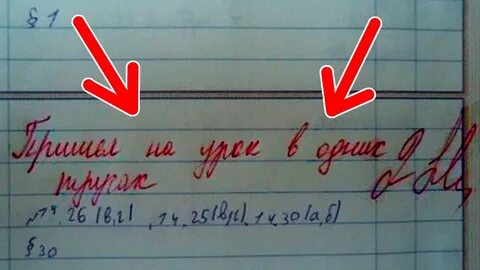 § 1
Пришел на урок в одних
трусах
№14.26(в,г), 14.25(в,г), 14.30(а,б)
§30